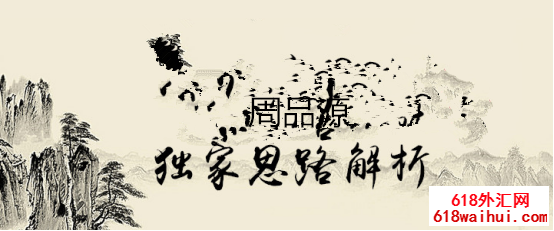 周品源
独家思路解析
618外汇网
618waihui.com